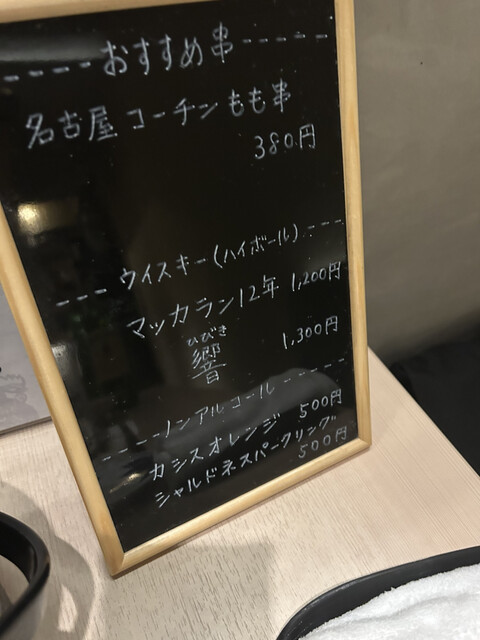 ----おすすめ串-----
名古屋コーチンもも串
380円
---ウイスキー(ハイボール)---
マッカラン12年 1,200円
ひびき
響 1,300円
----ノンアルコール-----
カシスオレンジ 500円
シャルドネスパークリング 500円